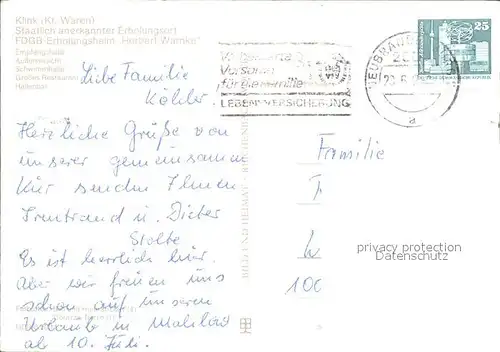 Klink (Kr. Waren)
Staatlich anerkannter Erholungsort
FDGB-Erholungsheim "Herbert Warnke"
Empfangshalle
Schwimmhalle
Großes Restaurant
Hallenbar
25
Vorsorge
für die Familie
LEBENSVERSICHERUNG
NEUBRANDENBURG
a
Liebe Familie
Köhler
Herzliche Grüße von
unserer gemeinsamen
Kur senden Ihnen
Irmtraud u. Dieter
Stolte
Es ist herrlich hier.
Aber wir freuen uns
schon auf unseren
Urlaub in
ab 10. Juli.
BILD UND HEIMAT
Familie
100
privacy protection
Datenschutz